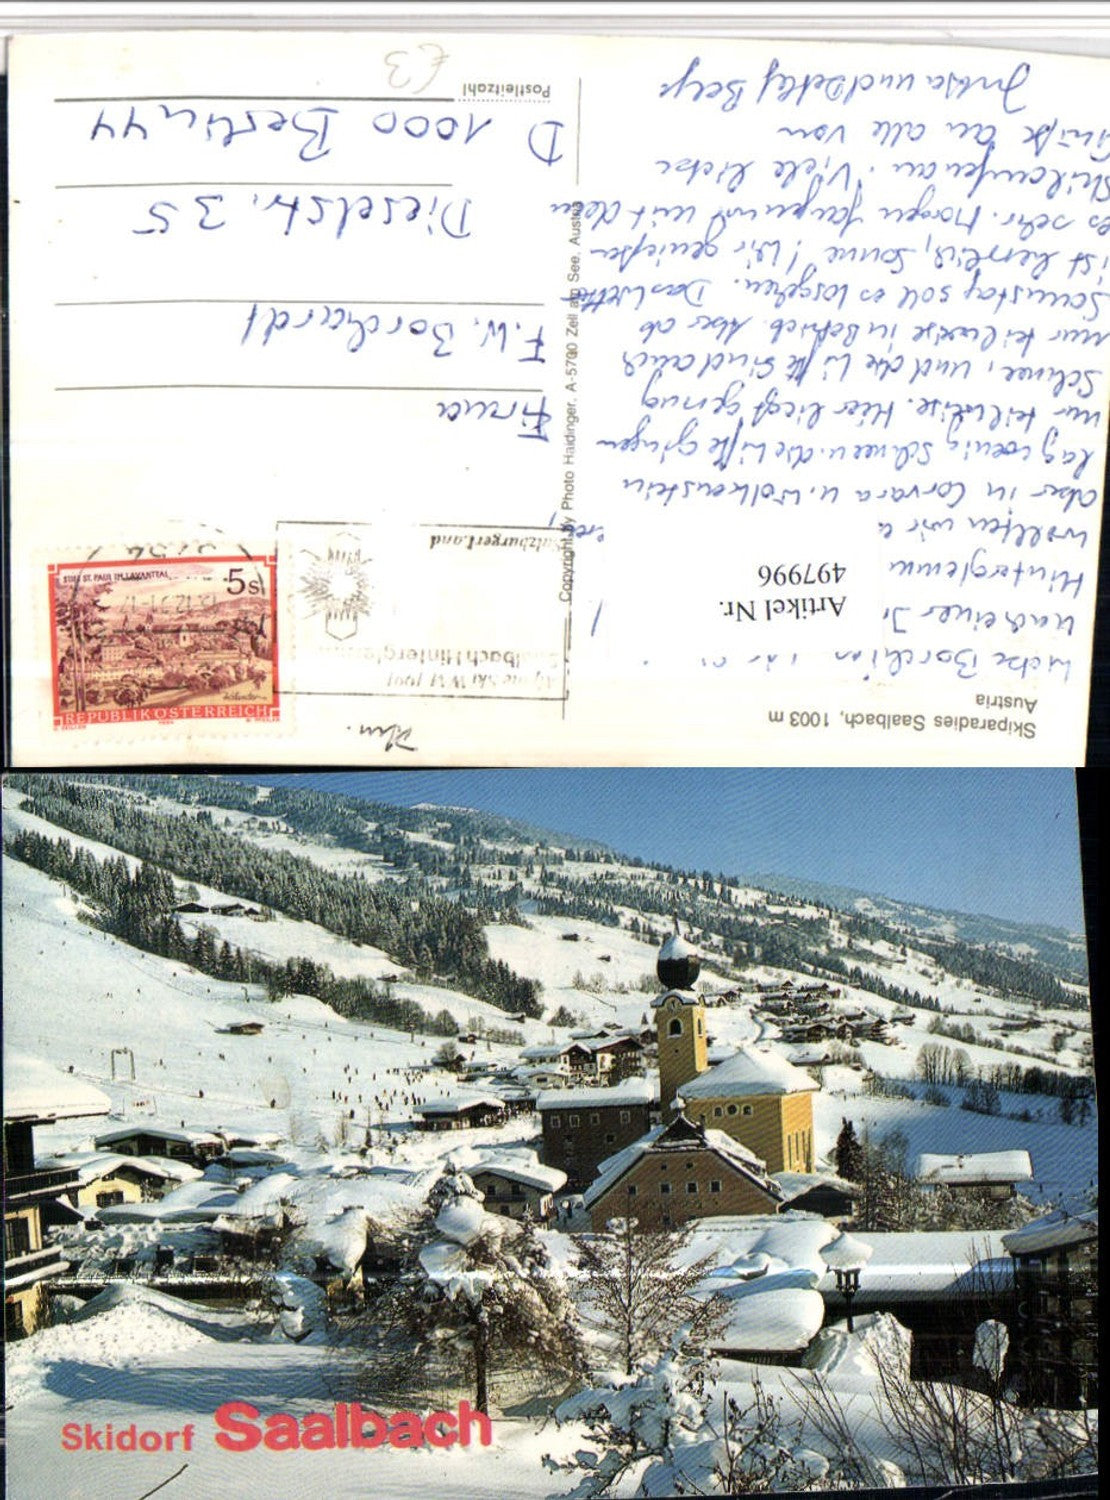 Skiparadies Saalbach, 1003 m
Austria
Liebe
nach einer
Hinterglemm
wollten wir
aber in Corvara u. Wolkenstein
lag wenig Schnee u. die Lifte gingen
nur teilweise. Hier liegt genug
Schnee, und die Lifte sind auch
nur teilweise in Betrieb. Aber ab
Samstag soll es losgehen. Das Wetter
ist herrlich, Sonne! Wir genießen
es sehr. Morgen fangen wir mit dem
Skilaufen an. Viele liebe
Grüße an alle von
und Detlef
Artikel Nr.
497996
Copyright by Photo Haidinger, A-5700 Zell am See, Austria
Alpine Ski WM 1991
Saalbach Hinterglemm
SalzburgerLand
STIFT ST. PAUL IM LAVANTTAL
5s
REPUBLIK ÖSTERREICH
Firma
F.W. Borchardt
Dieselstr. 35
D 1000 Berlin 44
Postleitzahl
€3
Skidorf Saalbach